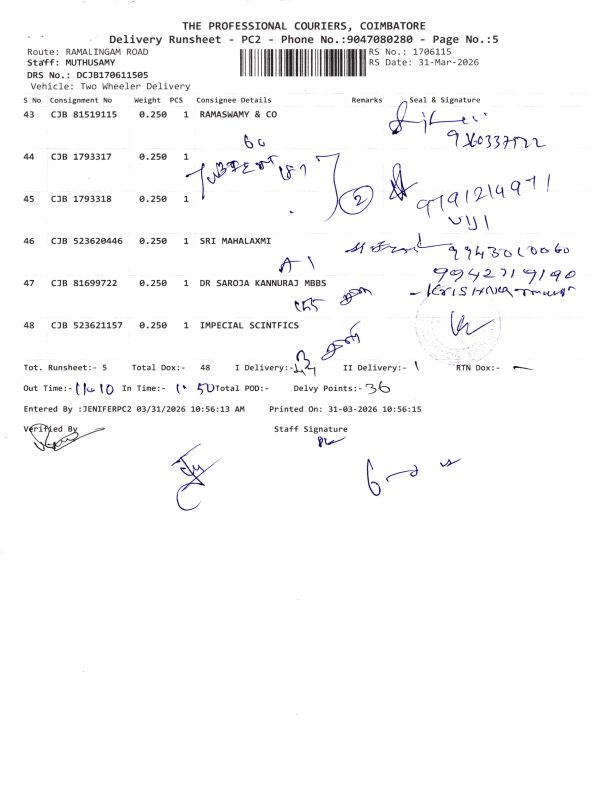 THE PROFESSIONAL COURIERS, COIMBATORE
Delivery Runsheet - PC2 - Phone No.:9047080280 - Page No.:5
Route: RAMALINGAM ROAD
RS No.: 1706115
Staff: MUTHUSAMY
RS Date: 31-Mar-2026
DRS No.: DCJB170611505
Vehicle: Two Wheeler Delivery
S No Consignment No Weight PCS Consignee Details Remarks Seal & Signature
43 CJB 81519115 0.250 1 RAMASWAMY & CO
60
44 CJB 1793317 0.250 1
2
9791214971
45 CJB 1793318 0.250 1
VIJI
46 CJB 523620446 0.250 1 SRI MAHALAXMI
9943010060
A1
9942719190
47 CJB 81699722 0.250 1 DR SAROJA KANNURAJ MBBS
48 CJB 523621157 0.250 1 IMPECIAL SCINTFICS
Tot. Runsheet:- 5 Total Dox:- 48 I Delivery:- II Delivery:- 1 RTN Dox:- -
Out Time:- 11.10 In Time:- 1.50 Total POD:- Delvy Points:- 36
Entered By :JENIFERPC2 03/31/2026 10:56:13 AM Printed On: 31-03-2026 10:56:15
Verified By Staff Signature